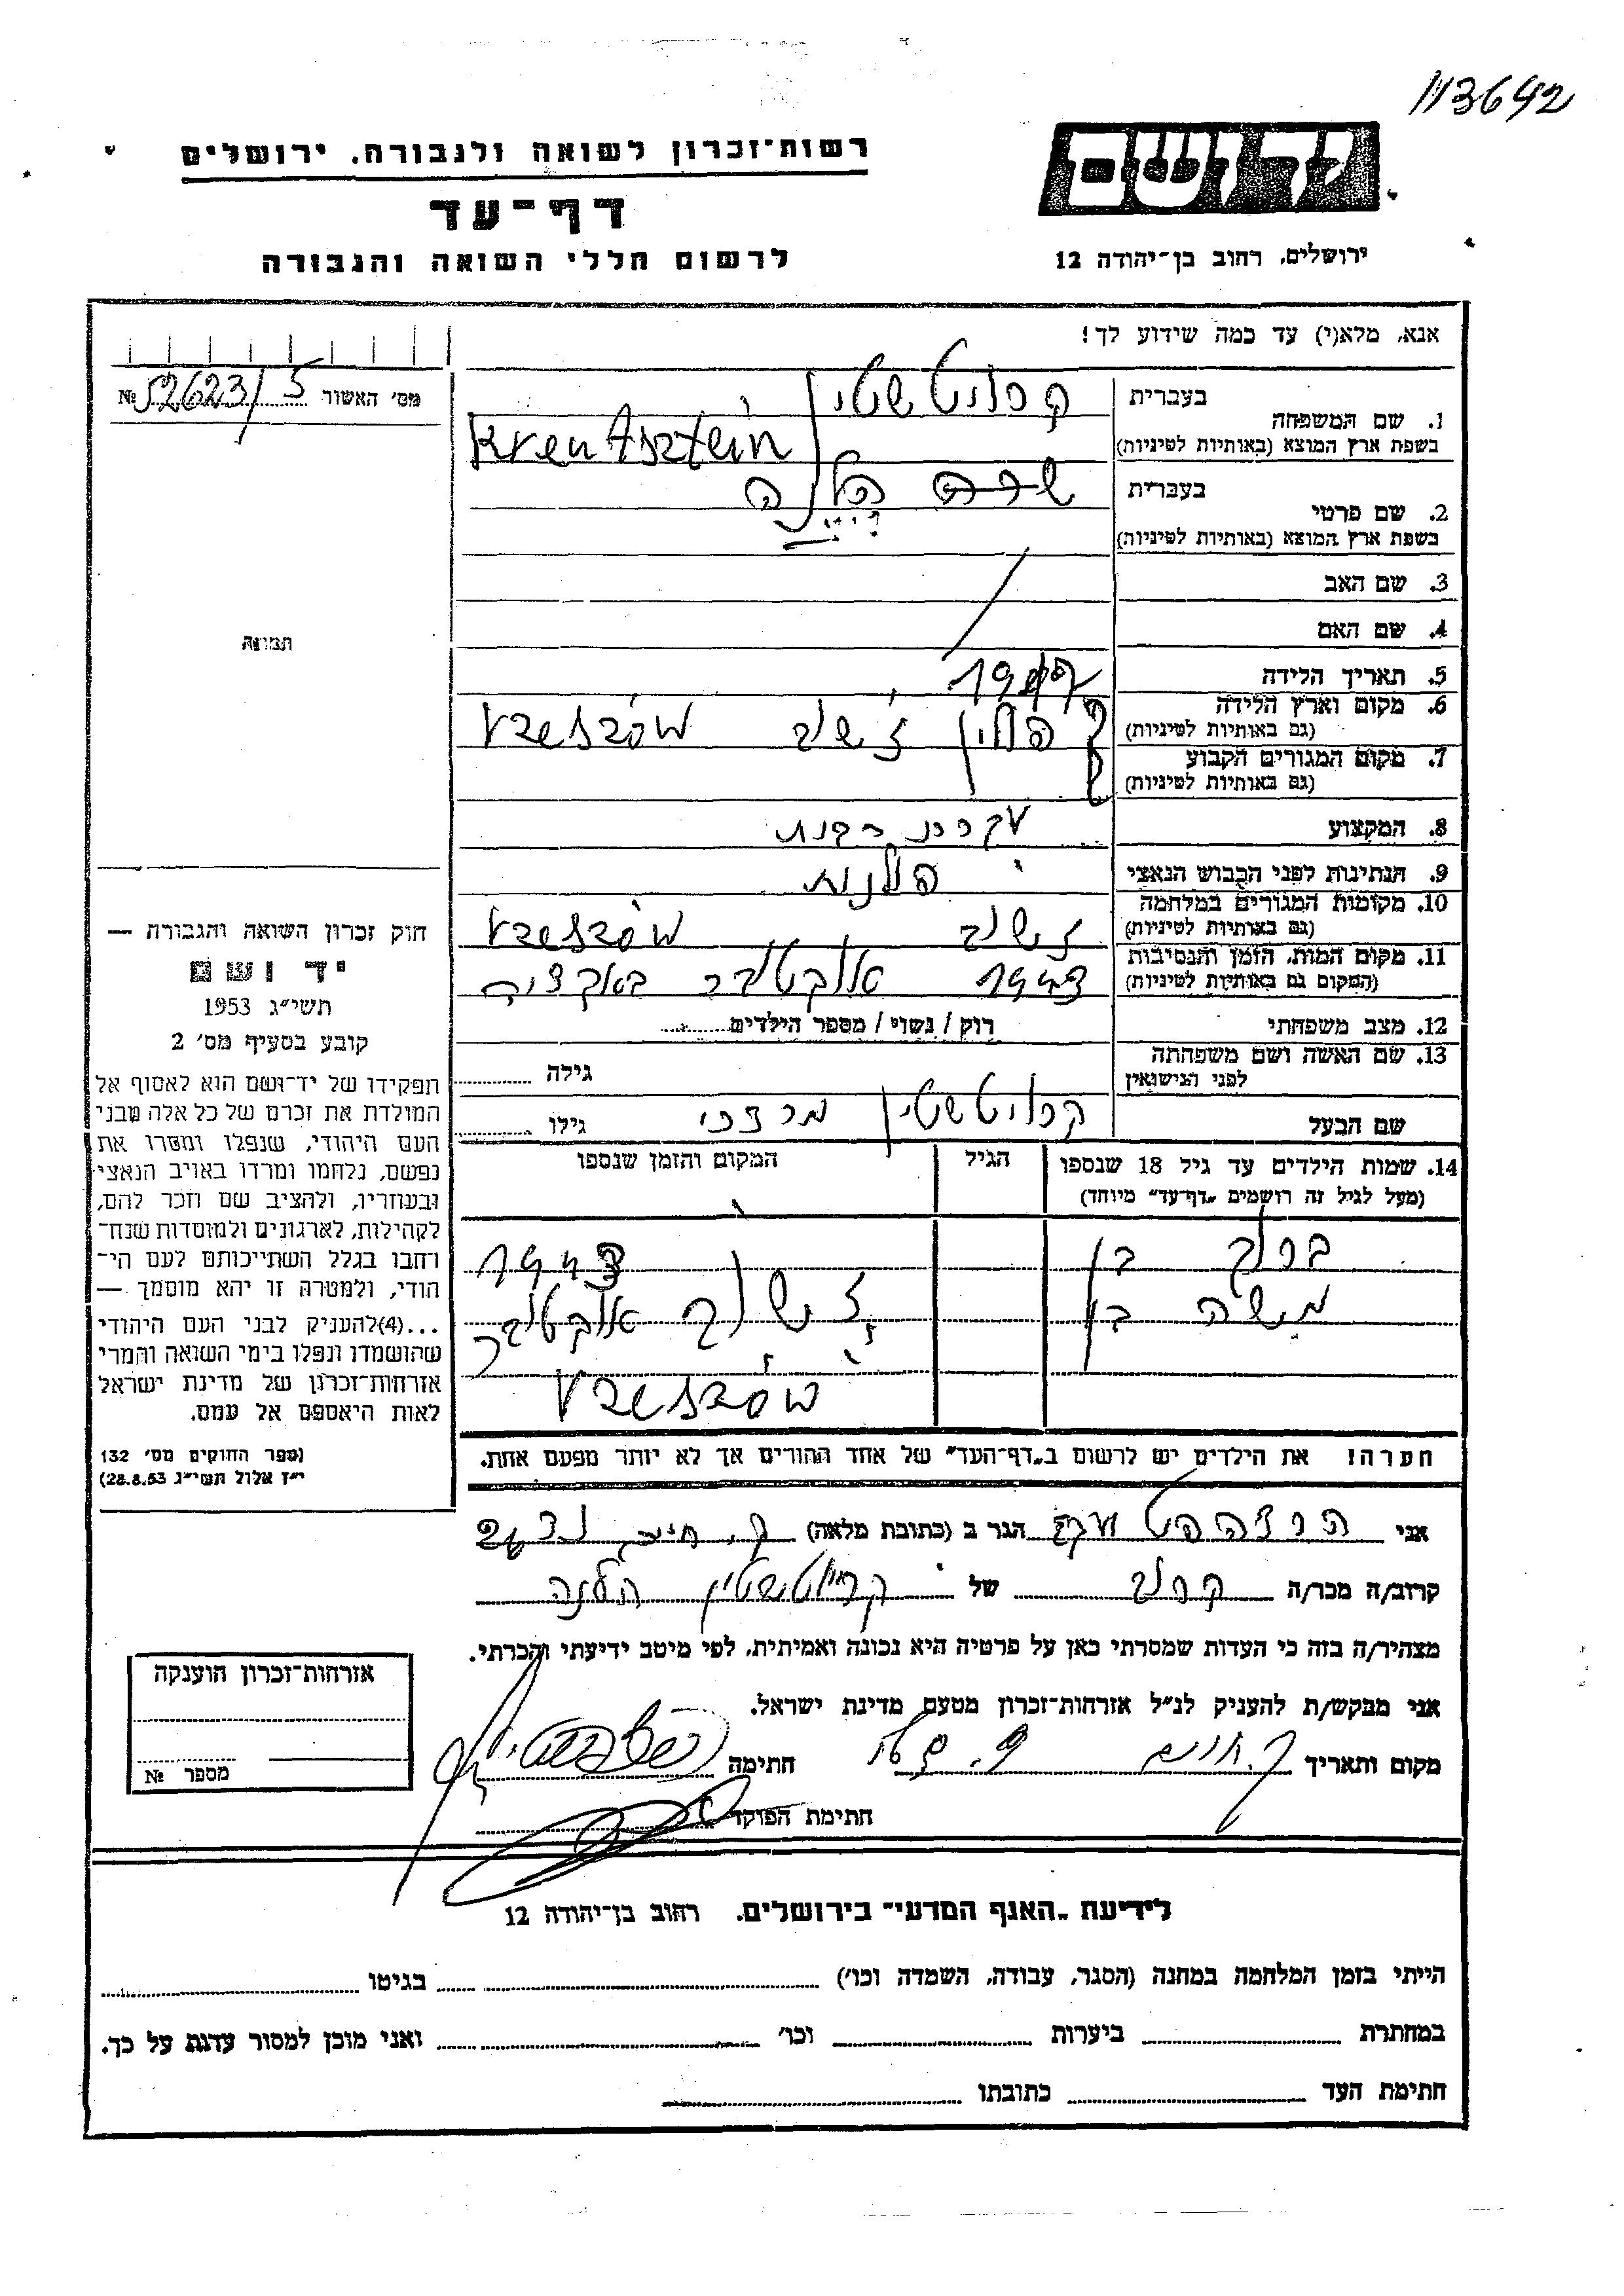 113642
יד ושם
רשות־זכרון לשואה ולגבורה, ירושלים
דף־עד
לרשום חללי השואה והגבורה
ירושלים, רחוב בן־יהודה 12
אנא, מלא(י) עד כמה שידוע לך!
מס׳ האשור 52623/5 №
1. שם המשפחה
בעברית קרויטשטיין
בשפת ארץ המוצא (באותיות לטיניות) Kreutsztein
2. שם פרטי
בעברית שרה הלנה
בשפת ארץ המוצא (באותיות לטיניות)
3. שם האב
4. שם האם
תמונה
5. תאריך הלידה
6. מקום וארץ הלידה
(גם באותיות לטיניות) פולין
7. מקום המגורים הקבוע
(גם באותיות לטיניות)
8. המקצוע עקרת בית
9. הנתינות לפני הכבוש הנאצי פולנית
10. מקומות המגורים במלחמה
(גם באותיות לטיניות)
11. מקום המות, הזמן והנסיבות
(המקום גם באותיות לטיניות) 1943 אוקטובר באקציה
12. מצב משפחתי רוק / נשוי / מספר הילדים
13. שם האשה ושם משפחתה
לפני הנישואין גילה
שם הבעל קרויטשטיין מרדכי גילו
14. שמות הילדים עד גיל 18 שנספו הגיל המקום והזמן שנספו
(מעל לגיל זה רושמים „דף־עד״ מיוחד)
ברוך בן 1943
משה בן אוקטובר
הערה! את הילדים יש לרשום ב„דף־העד״ של אחד ההורים אך לא יותר מפעם אחת.
חוק זכרון השואה והגבורה —
יד ושם
תשי״ג 1953
קובע בסעיף מס׳ 2
תפקידו של יד־ושם הוא לאסוף אל
המולדת את זכרם של כל אלה מבני
העם היהודי, שנפלו ומסרו את
נפשם, נלחמו ומרדו באויב הנאצי
ובעוזריו, ולהציב שם וזכר להם,
לקהילות, לארגונים ולמוסדות שנח־
רבו בגלל השתייכותם לעם הי־
הודי, ולמטרה זו יהא מוסמך —
...(4)להעניק לבני העם היהודי
שהושמדו ונפלו בימי השואה והמרי
אזרחות־זכרון של מדינת ישראל
לאות היאספם אל עמם.
(ספר החוקים מס׳ 132
י״ז אלול תשי״ג 28.8.53)
אני הגר ב (כתובת מלאה)
קרוב/ה מכר/ה קרוב של קרויטשטיין הלנה
מצהיר/ה בזה כי העדות שמסרתי כאן על פרטיה היא נכונה ואמיתית, לפי מיטב ידיעתי והכרתי.
אני מבקש/ת להעניק לנ״ל אזרחות־זכרון מטעם מדינת ישראל.
מקום ותאריך חתימה
חתימת הפוקד
אזרחות־זכרון הוענקה
מספר №
לידיעת „האגף המדעי״ בירושלים, רחוב בן־יהודה 12
הייתי בזמן המלחמה במחנה (הסגר, עבודה, השמדה וכו׳) בגיטו
במחתרת ביערות וכו׳ ואני מוכן למסור עדות על כך.
חתימת העד כתובתו